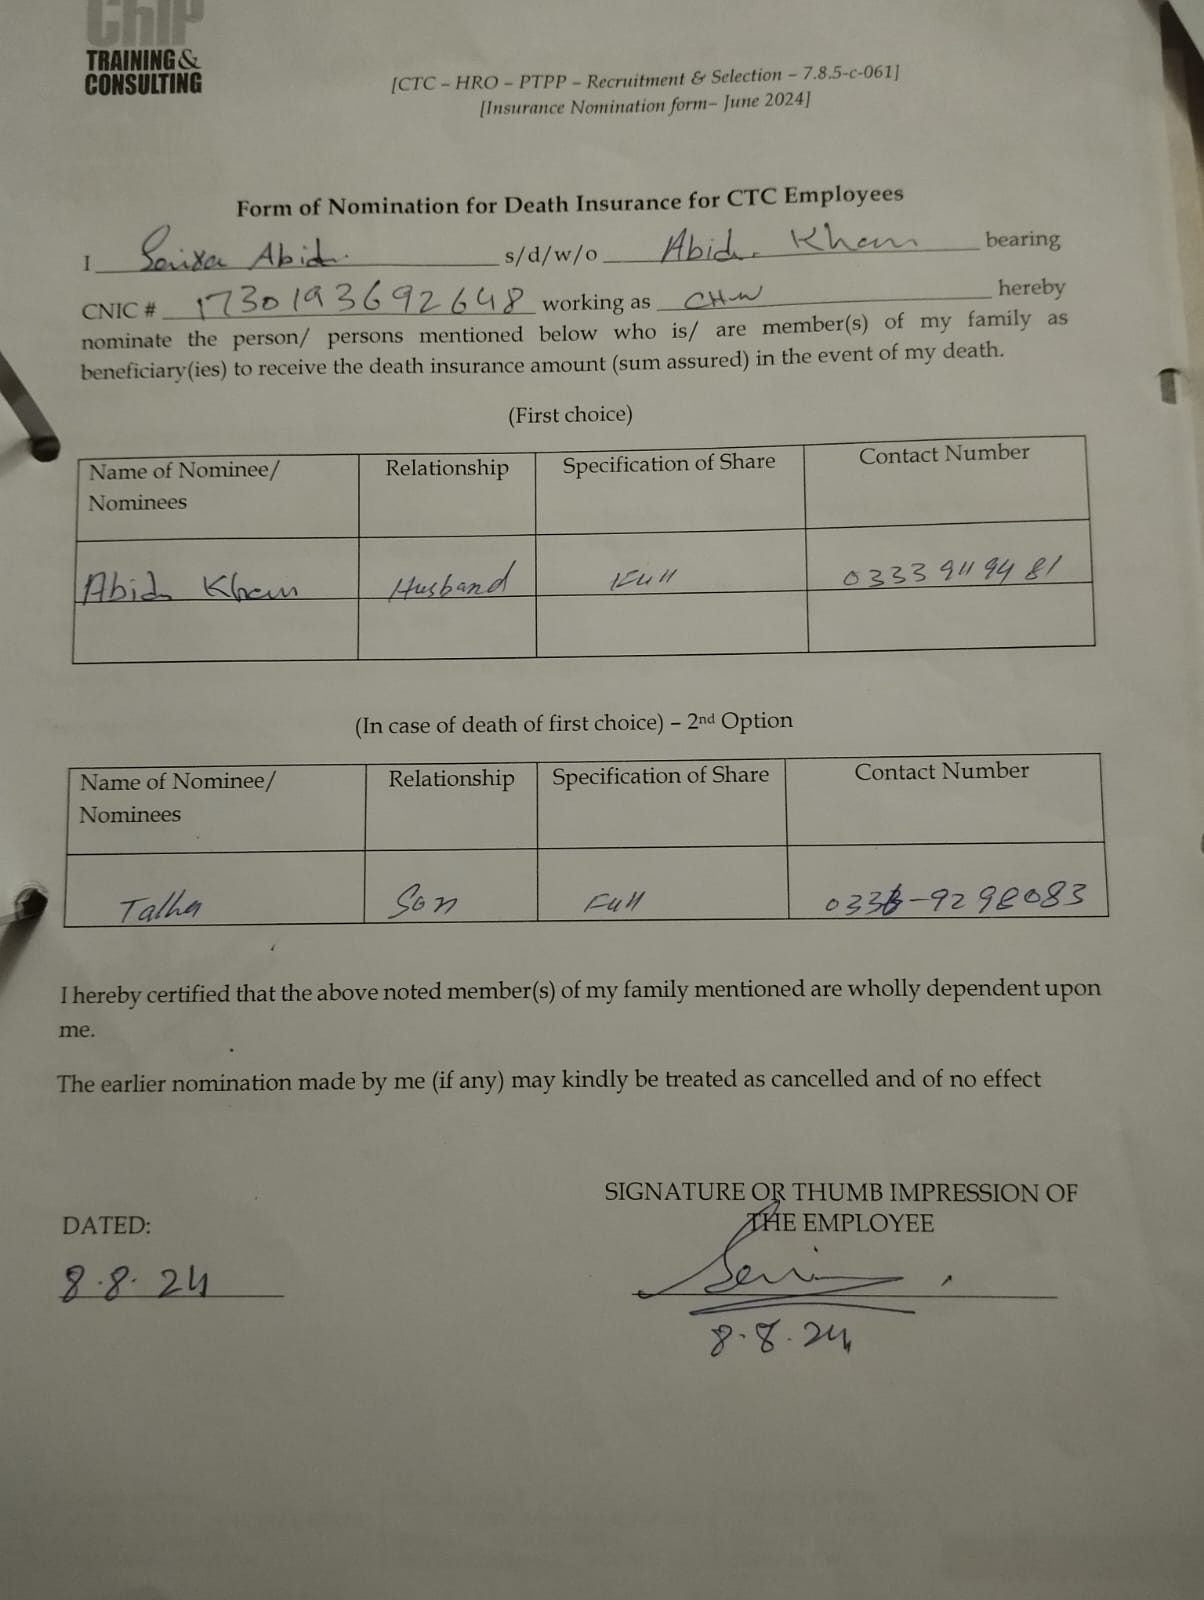 ChIP
TRAINING &
CONSULTING
[CTC – HRO – PTPP – Recruitment & Selection – 7.8.5-c-061]
[Insurance Nomination form– June 2024]
Form of Nomination for Death Insurance for CTC Employees
I Abid s/d/w/o Abid Khan bearing
CNIC # 1730193692648 working as CHW hereby
nominate the person/ persons mentioned below who is/ are member(s) of my family as
beneficiary(ies) to receive the death insurance amount (sum assured) in the event of my death.
(First choice)
Name of Nominee/ Relationship Specification of Share Contact Number
Nominees
Abid Khan Husband Full 0333 9119481
(In case of death of first choice) – 2nd Option
Name of Nominee/ Relationship Specification of Share Contact Number
Nominees
Talha Son Full
I hereby certified that the above noted member(s) of my family mentioned are wholly dependent upon
me.
The earlier nomination made by me (if any) may kindly be treated as cancelled and of no effect
SIGNATURE OR THUMB IMPRESSION OF
DATED: THE EMPLOYEE
8.8.24
8.8.24